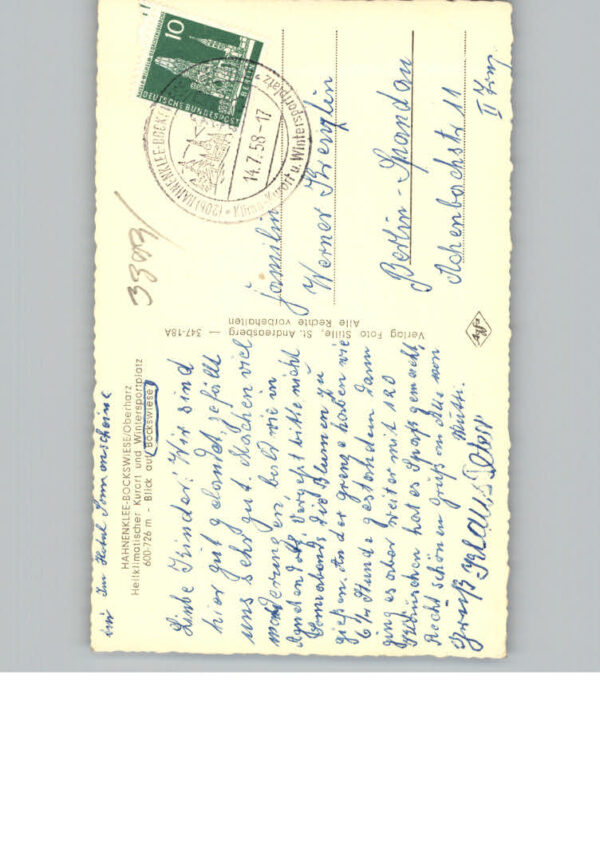 im Hotel Sonnenschein
HAHNENKLEE-BOCKSWIESE/Oberharz
Heilklimatischer Kurort und Wintersportplatz
600-726 m - Blick auf Bockswiese
Liebe Kinder. Wir sind
hier gut gelandet, gefällt
uns sehr gut. Machen viel
wanderungen, bald wie in
Vergeßt bitte nicht
Sonnabend, die Blumen zu
gießen. An der Grenze haben wir
Stunde gestanden dann
ging es aber weiter mit 120
hat es Spaß gemacht,
Recht schönen Gruß an Alle von
Mutti.
Gruß KLAUS
Verlag Foto Stille, St. Andreasberg — 347-18A
Alle Rechte vorbehalten
Agfa
3393/
10
DEUTSCHE BUNDESPOST
BERLIN
(20b) HAHNENKLEE-BOCKSWIESE
14.7.58-17
Kurort u. Wintersportplatz
Familie
Werner Krenzlin
Berlin-Spandau
Achenbachstr 11
II